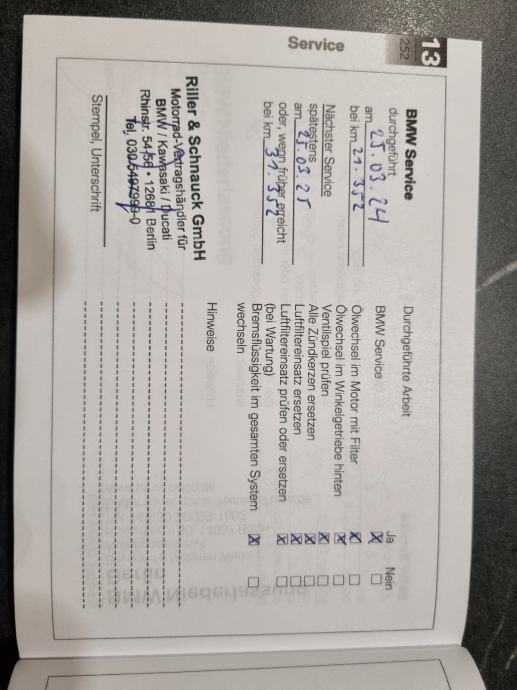 13
252
Service
BMW Service
durchgeführt
am 25.03.24
bei km 21.352
Nächster Service
spätestens
am 25.03.25
oder, wenn früher erreicht
bei km 31.352
Riller & Schnauck GmbH
Motorrad-Vertragshändler für
BMW / Kawasaki / Ducati
Rhinstr. 54/56 • 12681 Berlin
Tel. 030-5497999-0
Stempel, Unterschrift
Durchgeführte Arbeit
Ja Nein
BMW Service X
Ölwechsel im Motor mit Filter X
Ölwechsel im Winkelgetriebe hinten X
Ventilspiel prüfen X
Alle Zündkerzen ersetzen X
Luftfiltereinsatz ersetzen X
Luftfiltereinsatz prüfen oder ersetzen X
(bei Wartung)
Bremsflüssigkeit im gesamten System X
wechseln
Hinweise